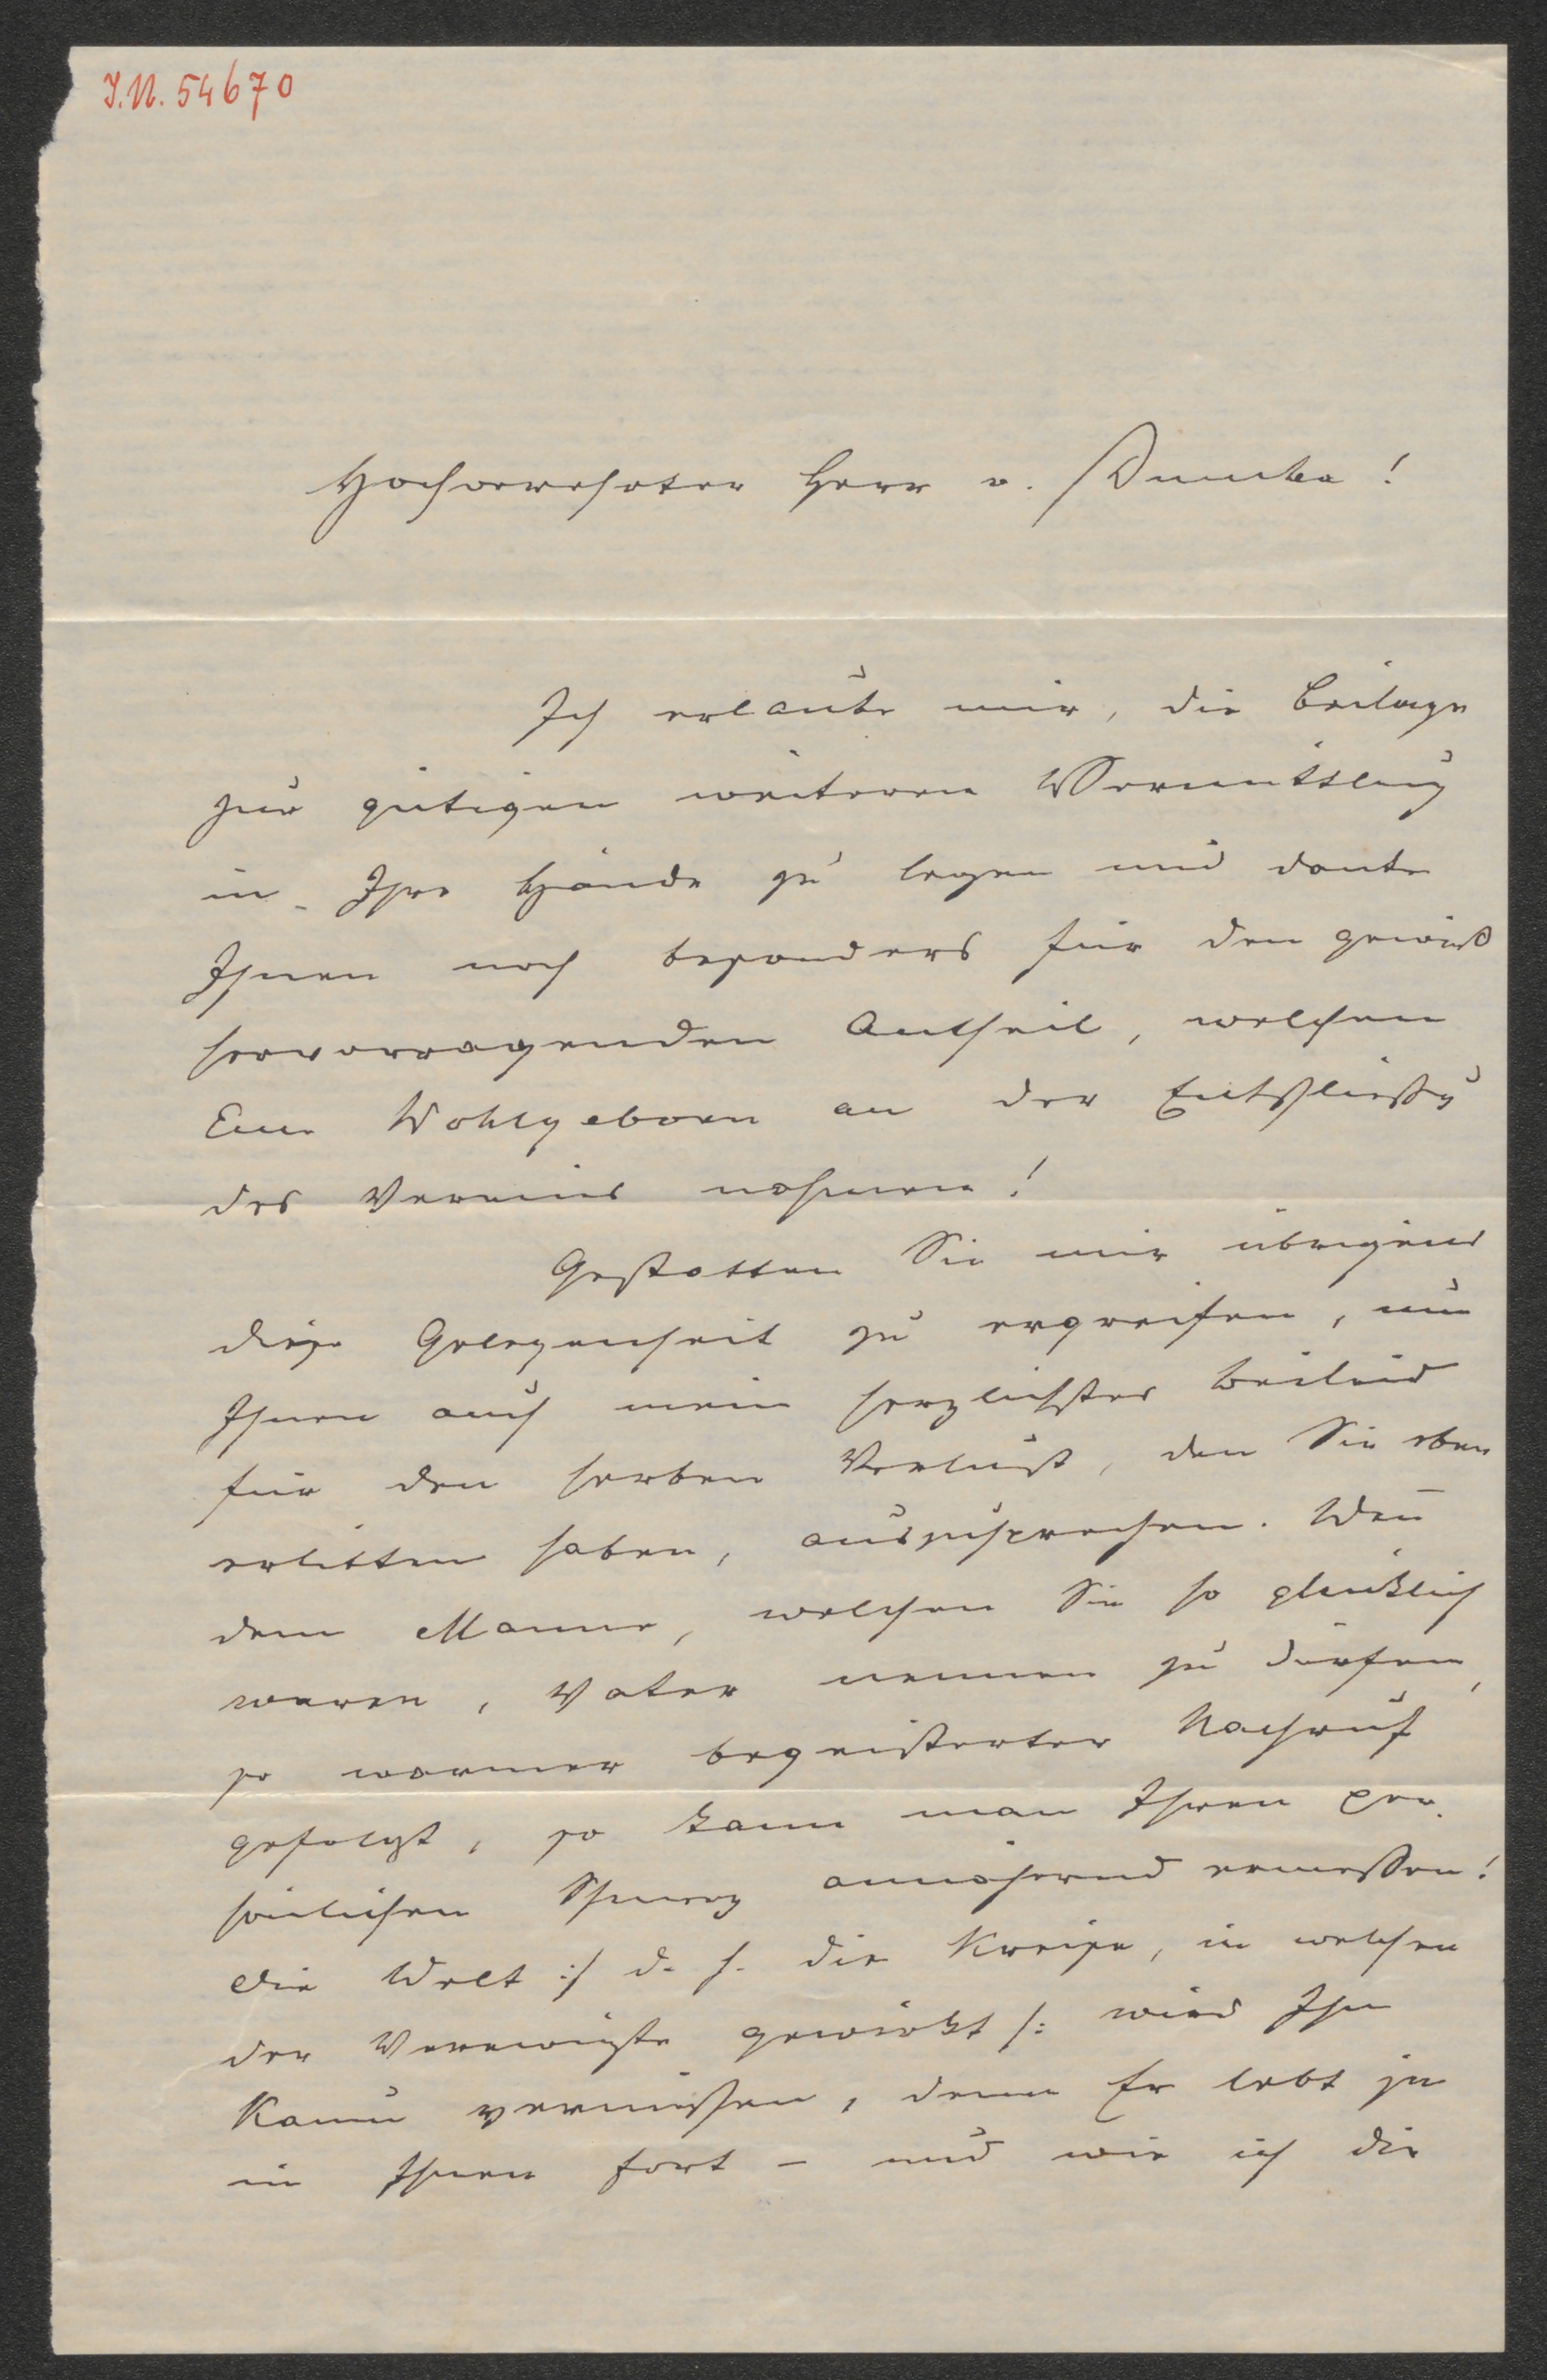 I.N. 54670
Hochverehrter Herr v. Dumba!
Ich erlaube mir, die Beilage
zur gütigen weiteren Vermittlung
in Ihre Hände zu legen und danke
Ihnen noch besonders für den gewiß
hervorragenden Antheil, welchen
Euer Wohlgeboren an der Entschließg
des Vereins nahmen!
Gestatten Sie mir übrigens
diese Gelegenheit zu ergreifen, um
Ihnen auch mein herzlichstes Beileid
für den herben Verlust, den Sie eben
erlitten haben, auszusprechen. Wen̄
dem Manne, welchen Sie so glücklich
waren, Vater nennen zu dürfen,
so warmer begeisterter Nachruf
gefolgt, so kann man Ihren per-
sönlichen Schmerz annähernd ermessen!
Die Welt :/ d. h. die Kreise, in welchen
der Verewigte gewirkt /: wird Ihn
kaum vermissen, denn Er lebt ja
in Ihnen fort – und wie ich die